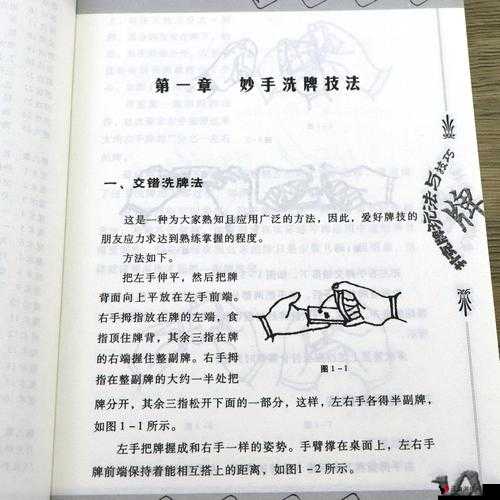 第一章 妙手洗牌技法
一、交错洗牌法
这是一种为大家熟知且应用广泛的方法，因此，爱好牌技的
朋友应力求达到熟练掌握的程度。
方法如下。
把左手伸平，然后把牌
背面向上平放在左手前端。
右手拇指放在牌的左端，食
指顶住牌背，其余三指在牌
的右端握住整副牌。右手拇
指在整副牌的大约一半处把
图1-1
牌分开，其余三指松开下面的一部分，这样，左右手各得半副牌，
如图1-1所示。
左手把牌握成和右手一样的姿势。手臂撑在桌面上，左右手
牌前端保持着能相互搭上的距离，如图1-2所示。
与技巧